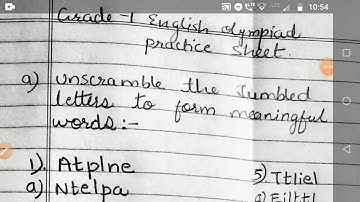 10:54
Grade-1 English Olympiad
practice Sheet.
a) unscramble the Jumbled
letters to form meaningful
words:-
1). Atplne
a) Ntelpa
5) Ttliel